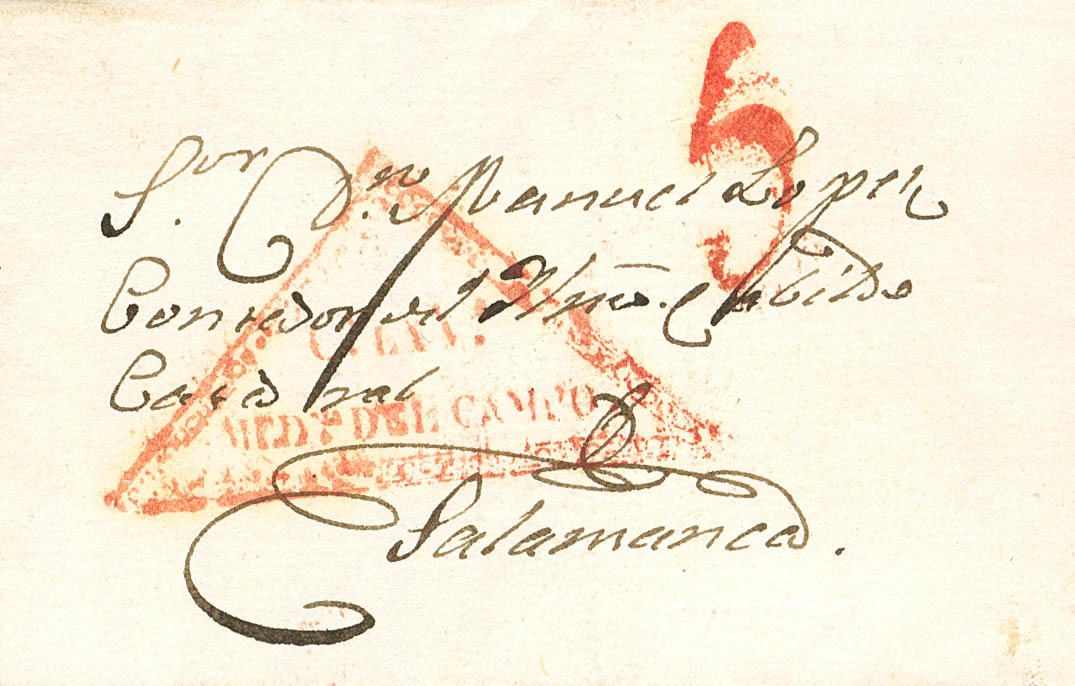 5
S.or D.n Manuel Lopez
Contador del Yllmo. Cabildo
C. LA V.
Catedral
MED.A DEL CAMPO
Salamanca.